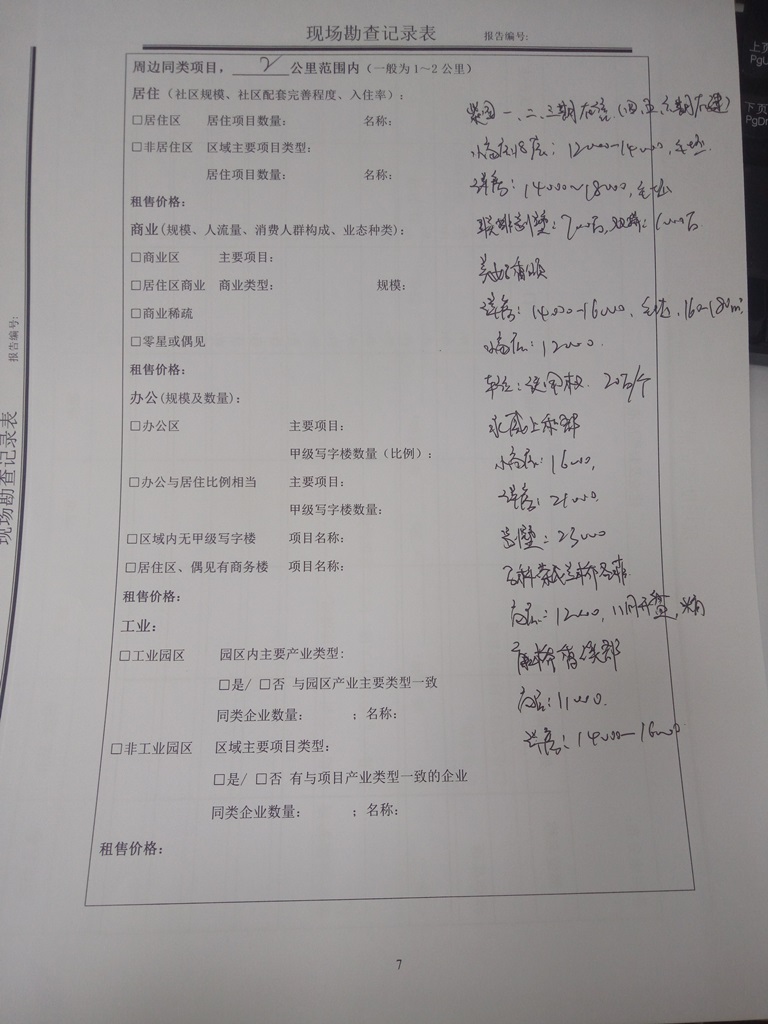 现场勘查记录表 报告编号:
周边同类项目，2公里范围内（一般为1～2公里）
居住（社区规模、社区配套完善程度、入住率）：
一、二、三期在售
□居住区 居住项目数量： 名称：
小高层18层：12000-14000，毛坯.
□非居住区 区域主要项目类型：
居住项目数量： 名称：
洋房：14000~18000，毛坯
租售价格：
商业(规模、人流量、消费人群构成、业态种类)：
联排别墅：700万，双拼：1000万.
□商业区 主要项目：
□居住区商业 商业类型： 规模：
洋房：14000-16000，毛坯，160-180m²
□商业稀疏
□零星或偶见
小高层：12000.
租售价格：
车位：使用权 20万/个
办公(规模及数量)：
□办公区 主要项目：
甲级写字楼数量（比例）：
小高层：16000，
□办公与居住比例相当 主要项目：
洋房：21000.
甲级写字楼数量：
□区域内无甲级写字楼 项目名称：
别墅：23000
□居住区、偶见有商务楼 项目名称：
租售价格：
高层：12000，11月开盘，
工业：
□工业园区 园区内主要产业类型:
□是/ □否 与园区产业主要类型一致
同类企业数量： ；名称：
高层：11000.
□非工业园区 区域主要项目类型：
洋房：14000-16000
□是/ □否 有与项目产业类型一致的企业
同类企业数量： ；名称：
租售价格：
7
报告编号:
现场勘查记录表
上页
PgU
下页
PgDn